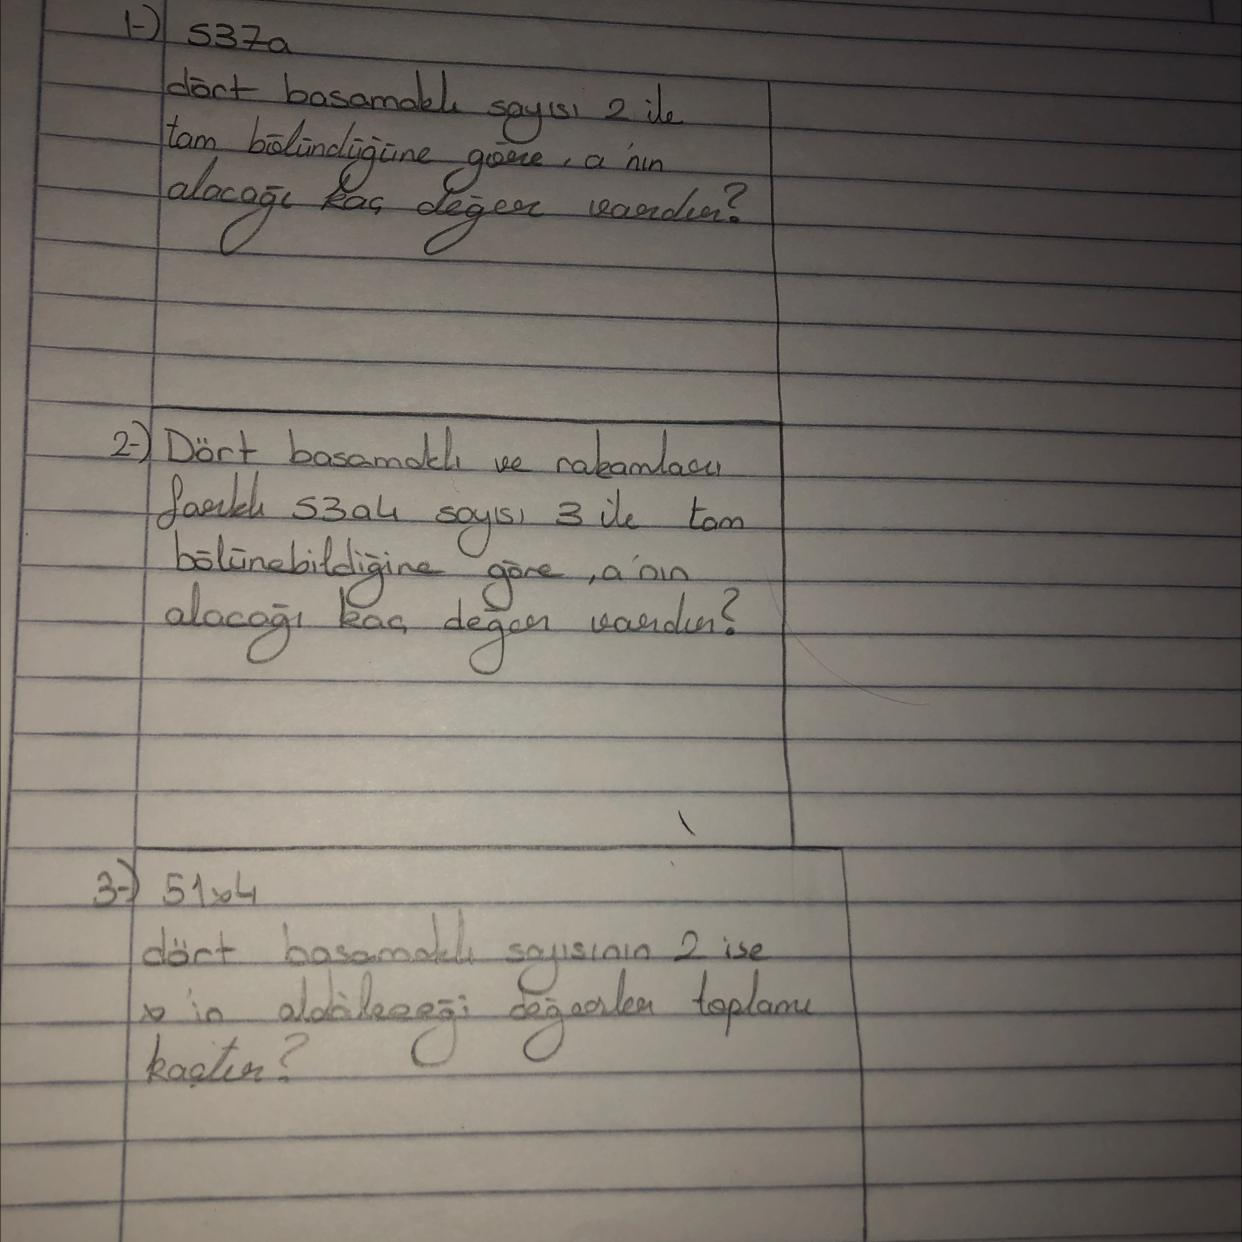 1-) 537a
dört basamaklı sayısı 2 ile
tam bölündüğüne göre, a'nın
alacağı kaç değer vardır?
2-) Dört basamaklı ve rakamları
farklı 53a4 sayısı 3 ile tam
bölünebildiğine göre, a'nın
alacağı kaç değer vardır?
3-) 51x4
dört basamaklı sayısının 2 ise
x in alabileceği değerler toplamı
kaçtır?